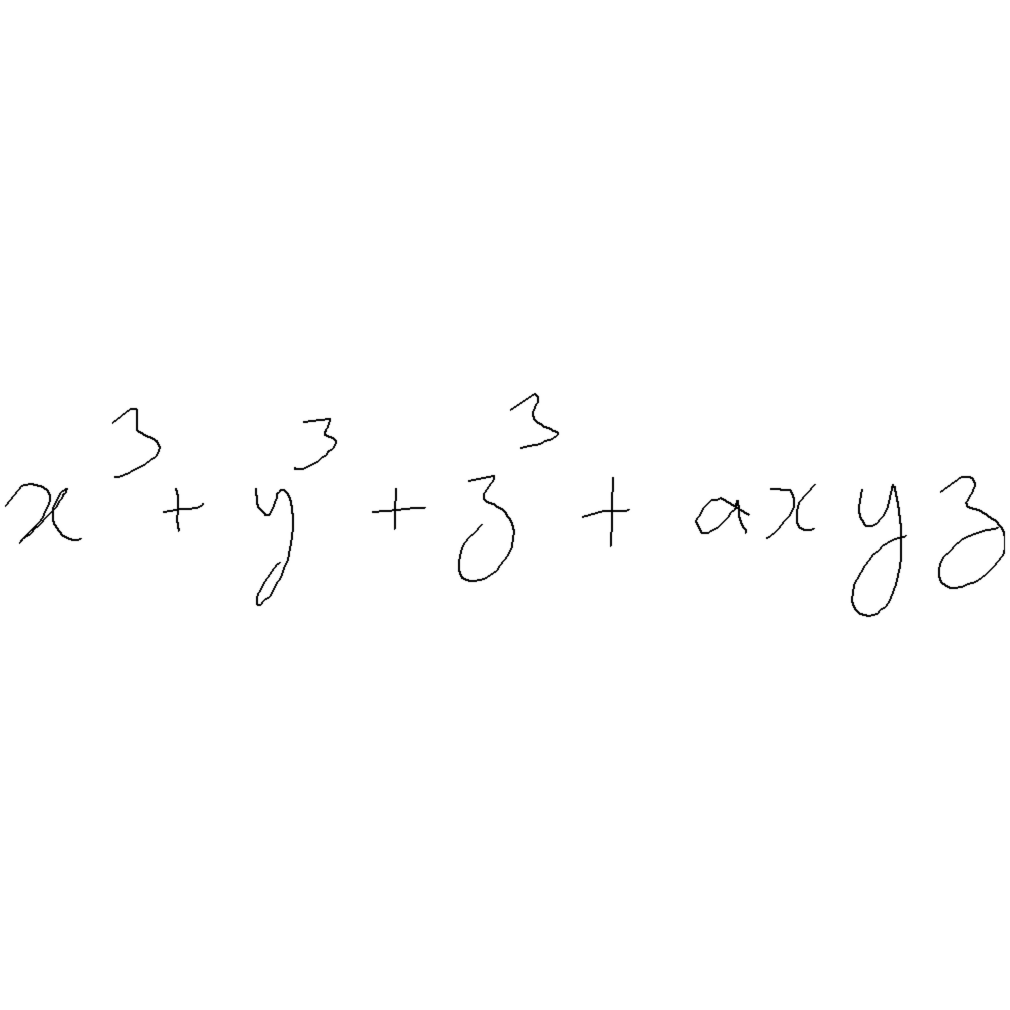 x³ + y³ + z³ + axyz